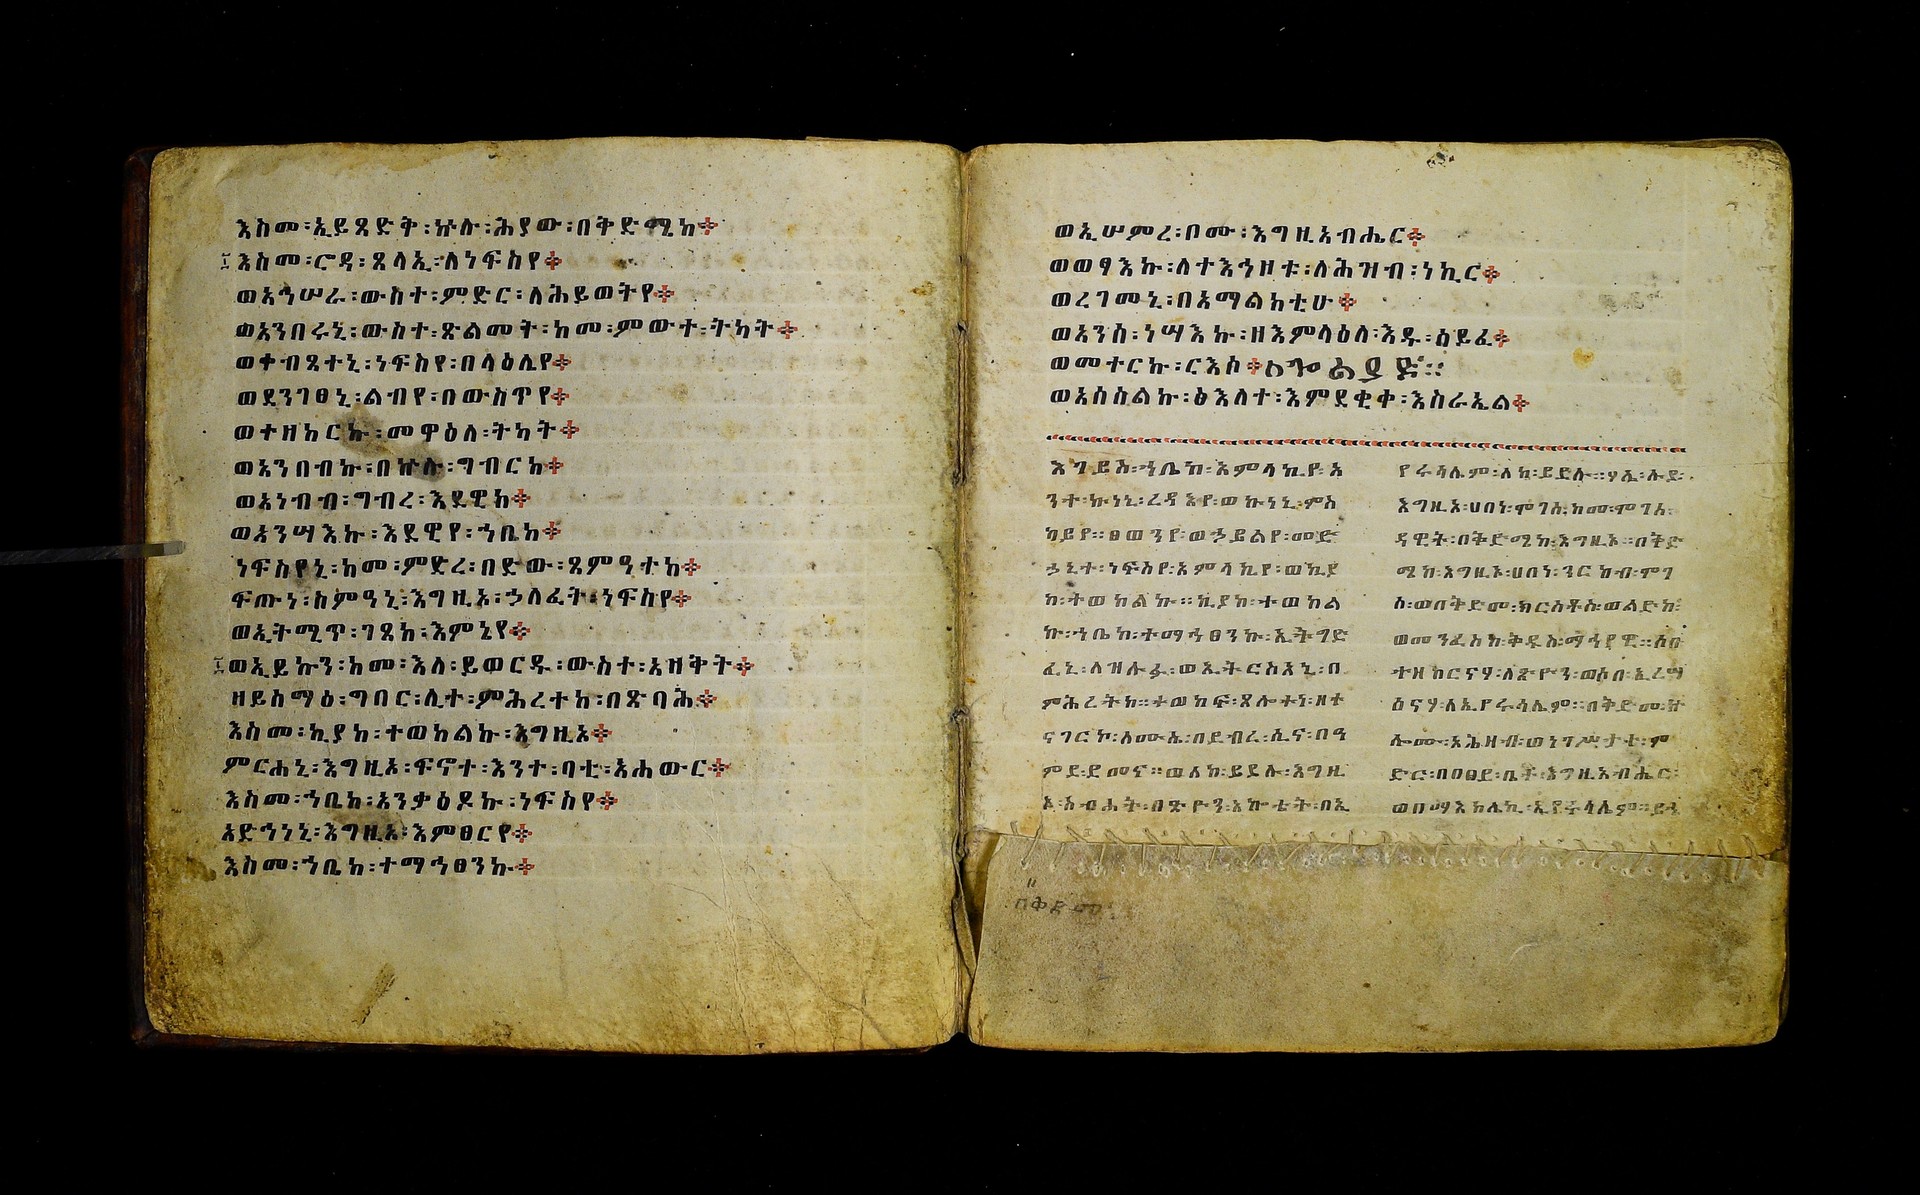 እስመ፡ኢይጸድቅ፡ኵሉ፡ሕያው፡በቅድሜከ፨
እስመ፡ሮዳ፡ጸላኢ፡ለነፍስየ፨
ወአኅሠራ፡ውስተ፡ምድር፡ለሕይወትየ፨
ወአንበሩኒ፡ውስተ፡ጽልመት፡ከመ፡ምውተ፡ትካት፨
ወቀብጸተኒ፡ነፍስየ፡በላዕሌየ፨
ወደንገፀኒ፡ልብየ፡በውስጥየ፨
ወተዘከርኩ፡መዋዕለ፡ትካት፨
ወአንበብኩ፡በኵሉ፡ግብርከ፨
ወአነብብ፡ግብረ፡እደዊከ፨
ወአንሣእኩ፡እደዊየ፡ኀቤከ፨
ነፍስየኒ፡ከመ፡ምድረ፡በድው፡ጸምዓተከ፨
ፍጡነ፡ስምዓኒ፡እግዚአ፡ኃለፈት፡ነፍስየ፨
ወኢትሚጥ፡ገጸከ፡እምኔየ፨
ወኢይኩን፡ከመ፡እለ፡ይወርዱ፡ውስተ፡አዝቅት፨
ዘይስማዕ፡ግበር፡ሊተ፡ምሕረተከ፡በጽባሕ፨
እስመ፡ኪያከ፡ተወከልኩ፡እግዚኦ፨
ምርሐኒ፡እግዚአ፡ፍኖተ፡እንተ፡ባቲ፡አሐውር፨
እስመ፡ኀቤከ፡አንቃዕዶኩ፡ነፍስየ፨
አድኅነኒ፡እግዚአ፡እምፀርየ፨
እስመ፡ኀቤከ፡ተማኅፀንኩ፨
ወኢሠምረ፡ቦሙ፡እግዚአብሔር፨
ወወፃእኩ፡ለተእኅዞቱ፡ለሕዝብ፡ነኪር፨
ወረገመኒ፡በአማልክቲሁ፨
ወአንሰ፡ነሣእኩ፡ዘእምላዕለ፡እዱ፡ሰይፈ፨
ወመተርኩ፡ርእሶ፨
ወአሰስልኩ፡ፅእለተ፡እምደቂቀ፡እስራኤል፨
እገይሥ፡ኀቤከ፡አምላኪየ፡አ
ንተ፡ኩነኒ፡ረዳእየ፡ወኩነኒ፡ምስ
ካይየ።ፀወንየ፡ወኃይልየ፡መድ
ኃኒተ፡ነፍስየ፡አምላኪየ፡ወኪያ
ከ፡ተወከልኩ።ኪያከ፡ተወከል
ኩ፡ኀቤከ፡ተማኅፀንኩ፡ኢትግድ
ፈኒ፡ለዝሉፉ፡ወኢትርስአኒ፡በ
ምሕረትከ።ተወከፍ፡ጸሎተነ፡ዘተ
ናገርኮ፡ለሙሴ፡በደብረ፡ሲና፡በዓ
ምደ፡ደመና።ወለከ፡ይደሉ፡እግዚ
ኦ፡ስብሐት፡በጽዮን፡አኰቴት፡በኢ
የሩሳሌም፡ለከ፡ይደሉ።ሃሌ፡ሉያ፡
እግዚኦ፡ሀበነ፡ሞገሰ፡ከመ፡ሞገሰ፡
ዳዊት፡በቅድሜከ፡እግዚኦ።በቅድ
ሜከ፡እግዚኦ፡ሀበነ፡ንርከብ፡ሞገ
ሰ፡ወበቅድመ፡ክርስቶስ፡ወልድከ፡
ወመንፈስከ፡ቅዱስ፡ማኅየዊ።ሶበ
ተዘከርናሃ፡ለጽዮን፡ወሶበ፡ኢረሣ
ዕናሃ፡ለኢየሩሳሌም።በቅድመ፡ኵ
ሎሙ፡አሕዛብ፡ወነገሥታተ፡ም
ድር፡በዐፀደ፡ቤተ፡እግዚአብሔር፡
ወበማእከሌኪ፡ኢየሩሳሌም።
በቅድመ